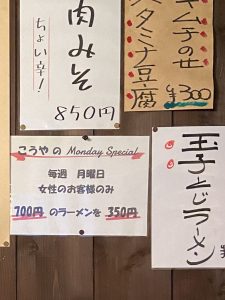 肉みそ
ちょい辛!
850円
キムチのせ
スタミナ豆腐
¥300
こうやの Monday Special
毎週 月曜日
女性のお客様のみ
700円 のラーメンを 350円
玉子とじラーメン